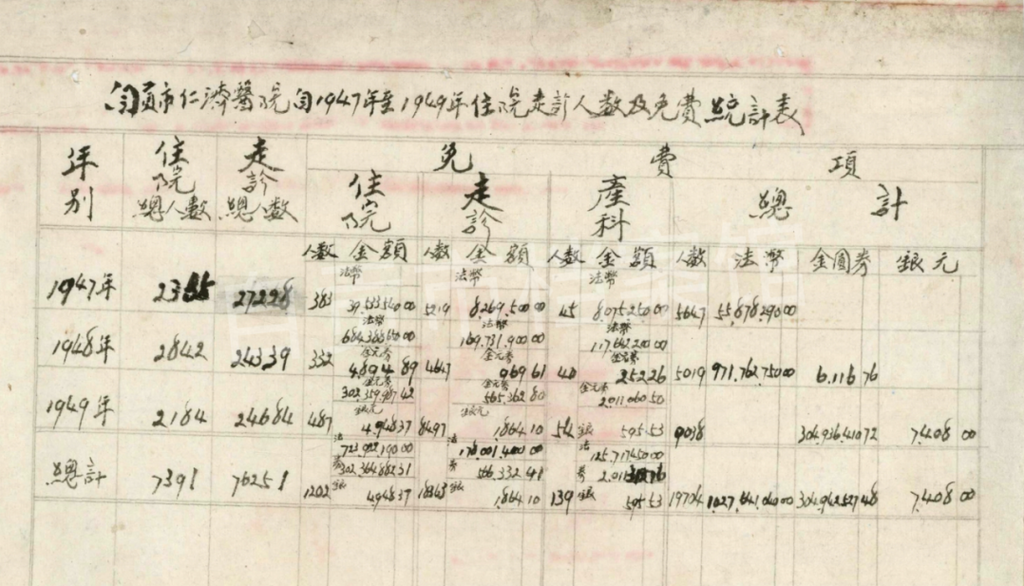 自貢市仁濟醫院自1947年至1949年住院走診人數及免費統計表
年別 住院總人數 走診總人數 免費項
住院 走診 產科 總計
人數 金額 人數 金額 人數 金額 人數 法幣 金圓券 銀元
法幣 法幣 法幣
1947年 27228 383 5219 8,269,500.00 45 8,075,250.00 5647 55,878,290.00
法幣 法幣 法幣
684,388,650.00 169,731,900.00 117,642,200.00
金元券 金元券 金元券
1948年 2842 24339 332 4,894.89 4647 969.61 40 252.26 5019 971,762,750.00 6,116.76
金元券 金元券 金元券
565,362.80 2,011,060.50
銀元 銀元 銀
1949年 2184 24684 487 4,948.37 8497 1,864.10 54 595.53 9038 304,936,410.72 7,408.00
法 法 法
723,922,190.00 178,001,400.00 125,717,450.00
券 券
566,332.41
銀 銀 銀
總計 7391 76251 1202 4,948.37 18363 1,864.10 139 595.53 19704 1,027,641,040.00 304,942,527.48 7,408.00